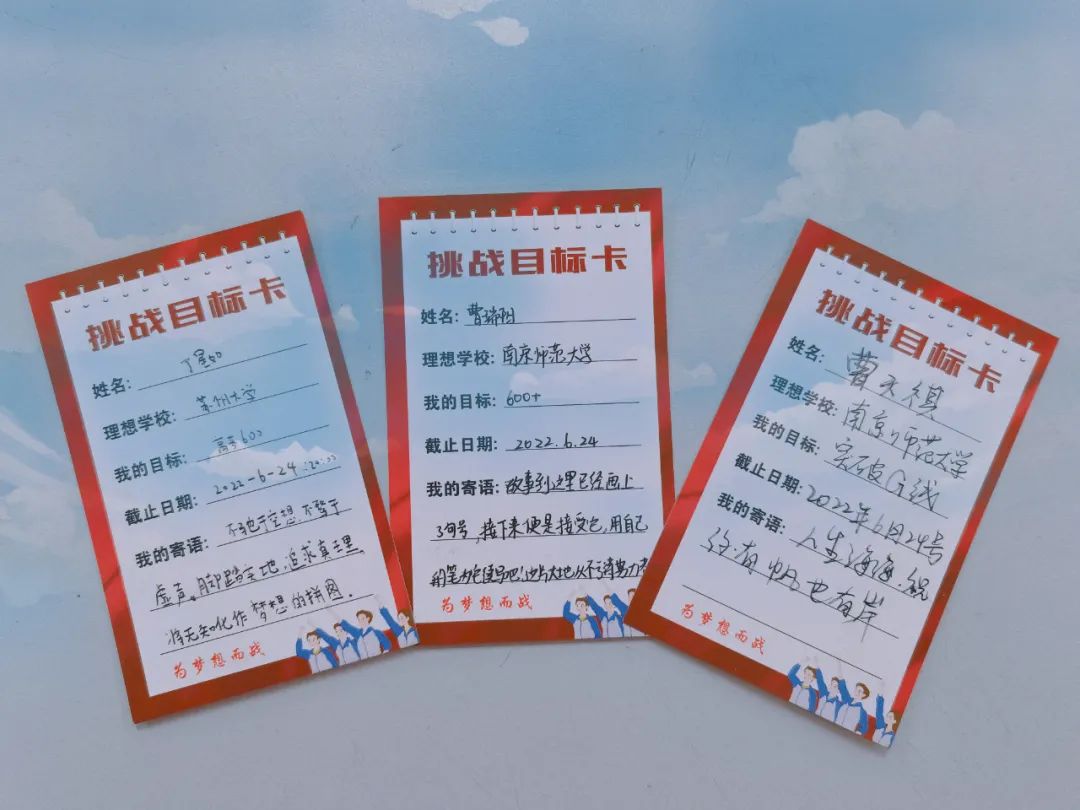 挑战目标卡
姓名:
理想学校: 苏州大学
我的目标: 高考600
截止日期: 2022-6-24
我的寄语: 不驰于空想,不骛于
虚声。脚踏实地,追求真理,
将无知化作梦想的拼图。
为梦想而战
挑战目标卡
姓名: 曹瑞阳
理想学校: 南京师范大学
我的目标: 600+
截止日期: 2022.6.24
我的寄语: 故事到这里已经画上
了句号,接下来便是接受它,用自己
为梦想而战
挑战目标卡
姓名: 曹天祺
理想学校: 南京师范大学
我的目标: 突破G线
截止日期: 2022年6月24号
我的寄语: 人生海海,祝
你有帆也有岸
为梦想而战